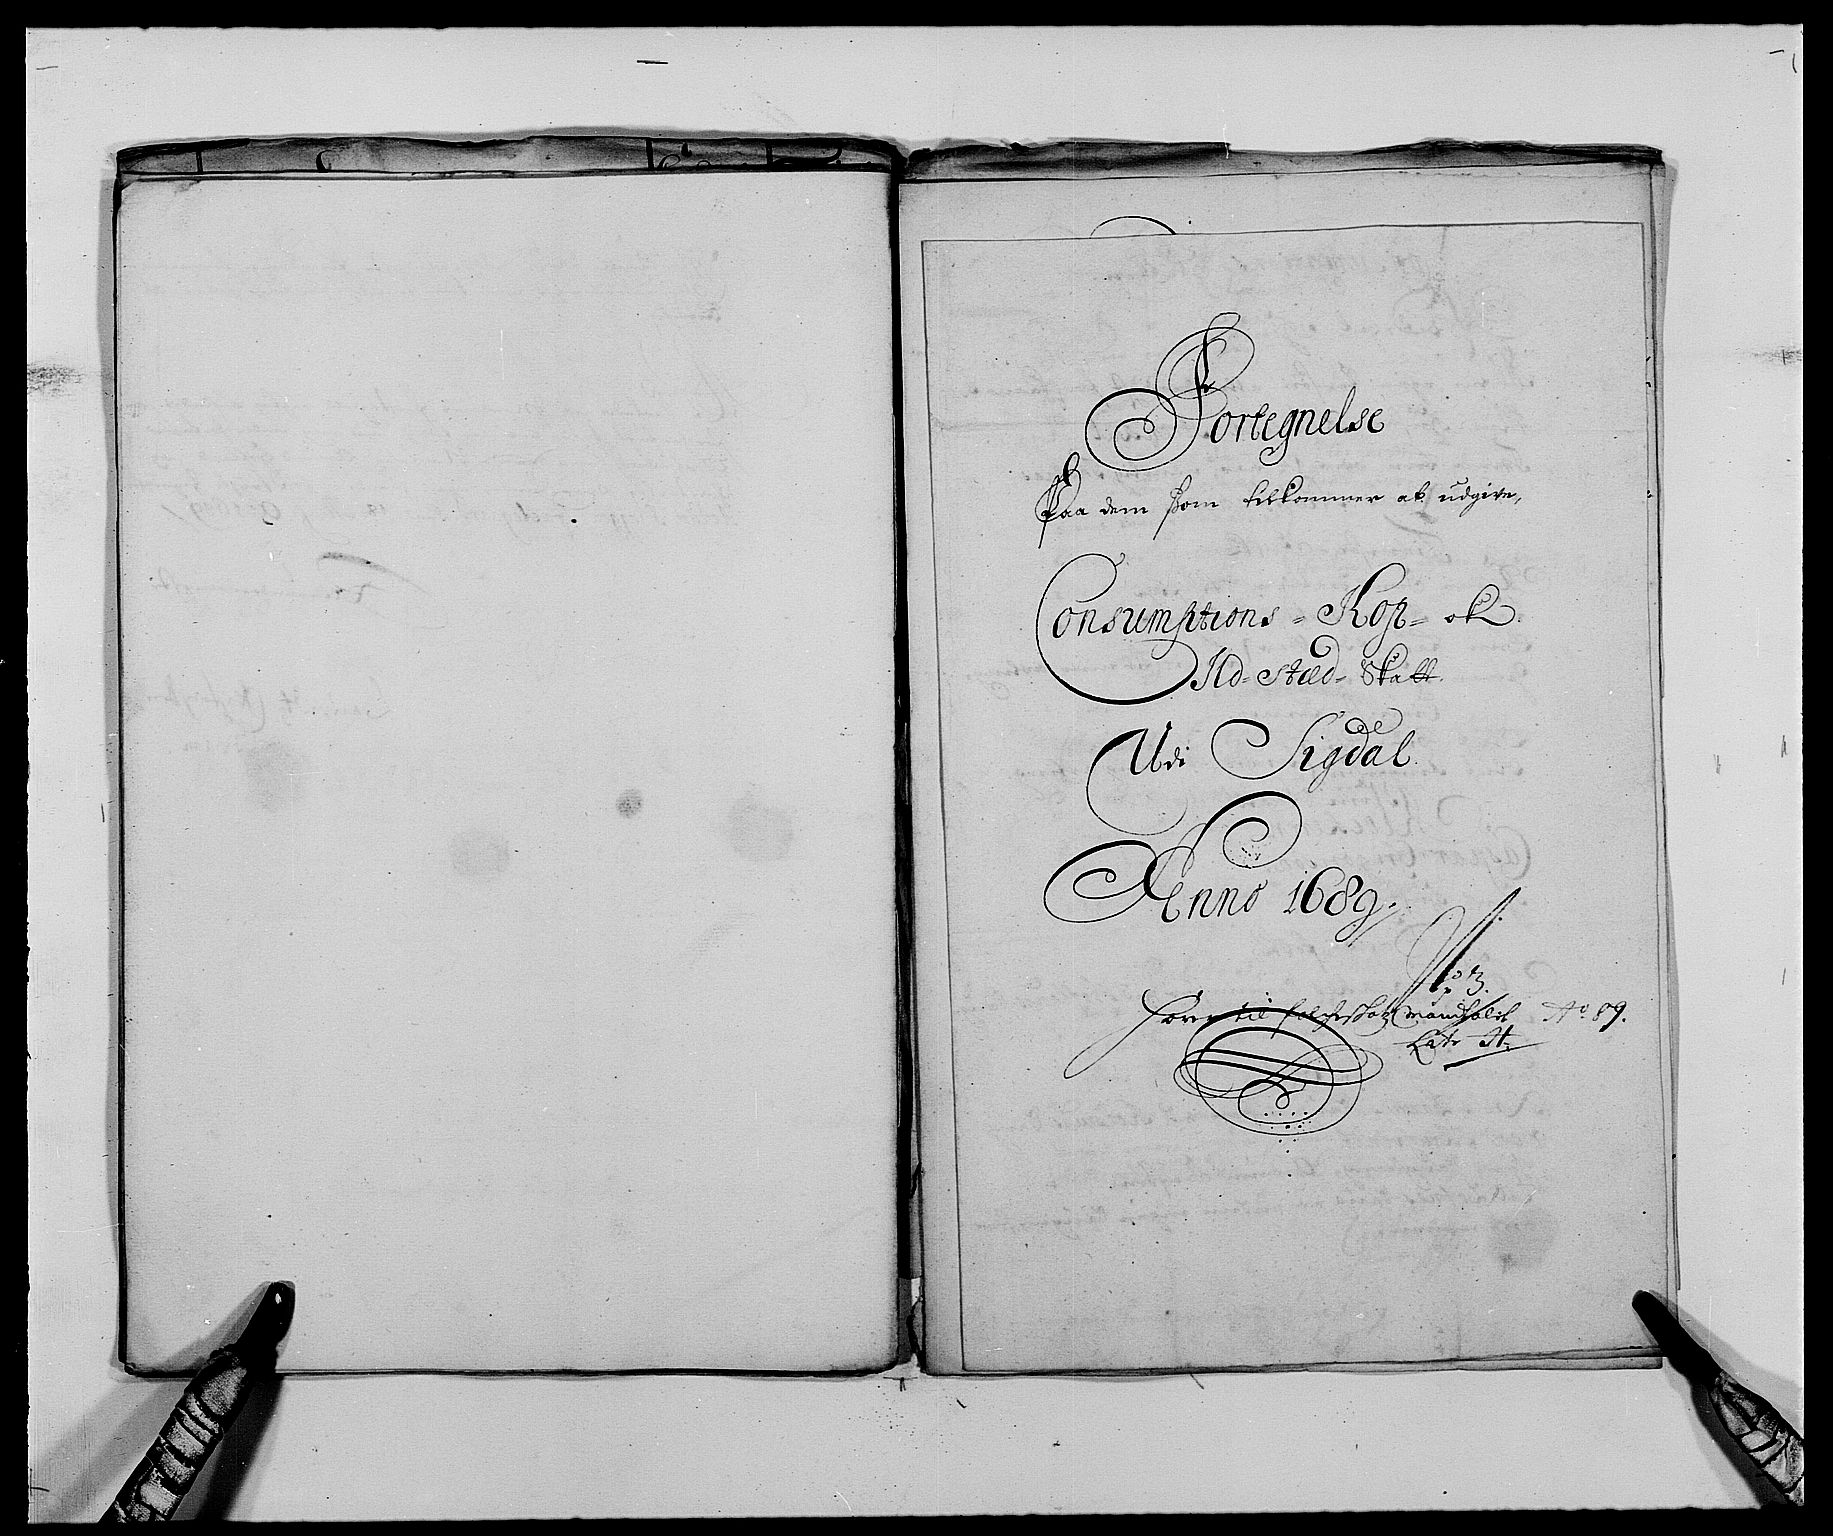 Fortegnelse
Paa dem som tilkommer at udgive,
Consumptions = Kop = ok
Ild = stæd = Skatt.
Udi Sigdal.
Anno 1689.
No 3.
hører til Mandtalit Ao 89.
Litr H.